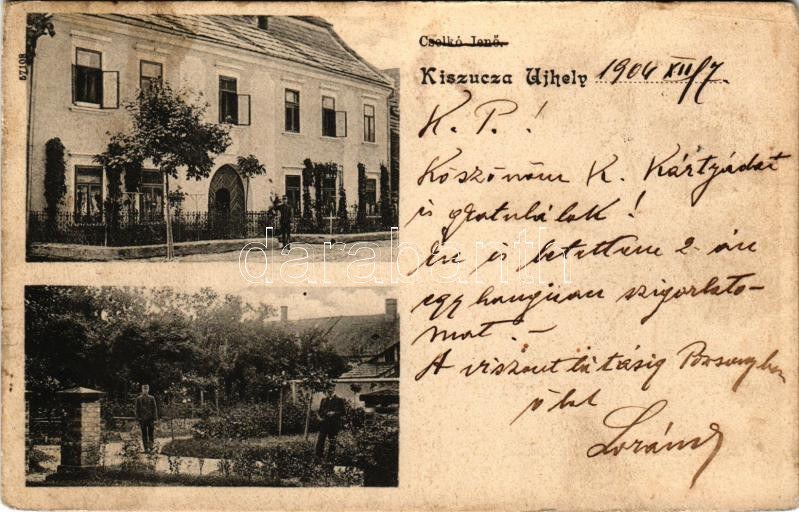 57108
Cselkó Jenő.
Kiszucza Ujhely 1904 XII/7.
K. P.!
Köszönöm K. Kártyádat
és gratulálok!
Én is letettem 2-án
egyhangúan szigorlato-
mat. -
A viszontlátásig Pozsonyban
ölel
Loránd
darabanth